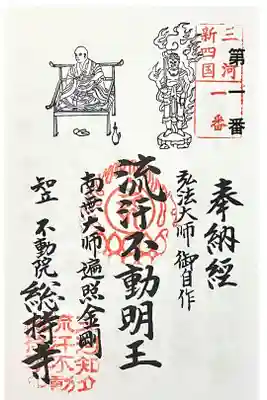 第一番
三河
新四国
一番
奉納経
弘法大師 御自作
流汗不動明王
南無大師遍照金剛
知立 不動院 総持寺
流汗不動